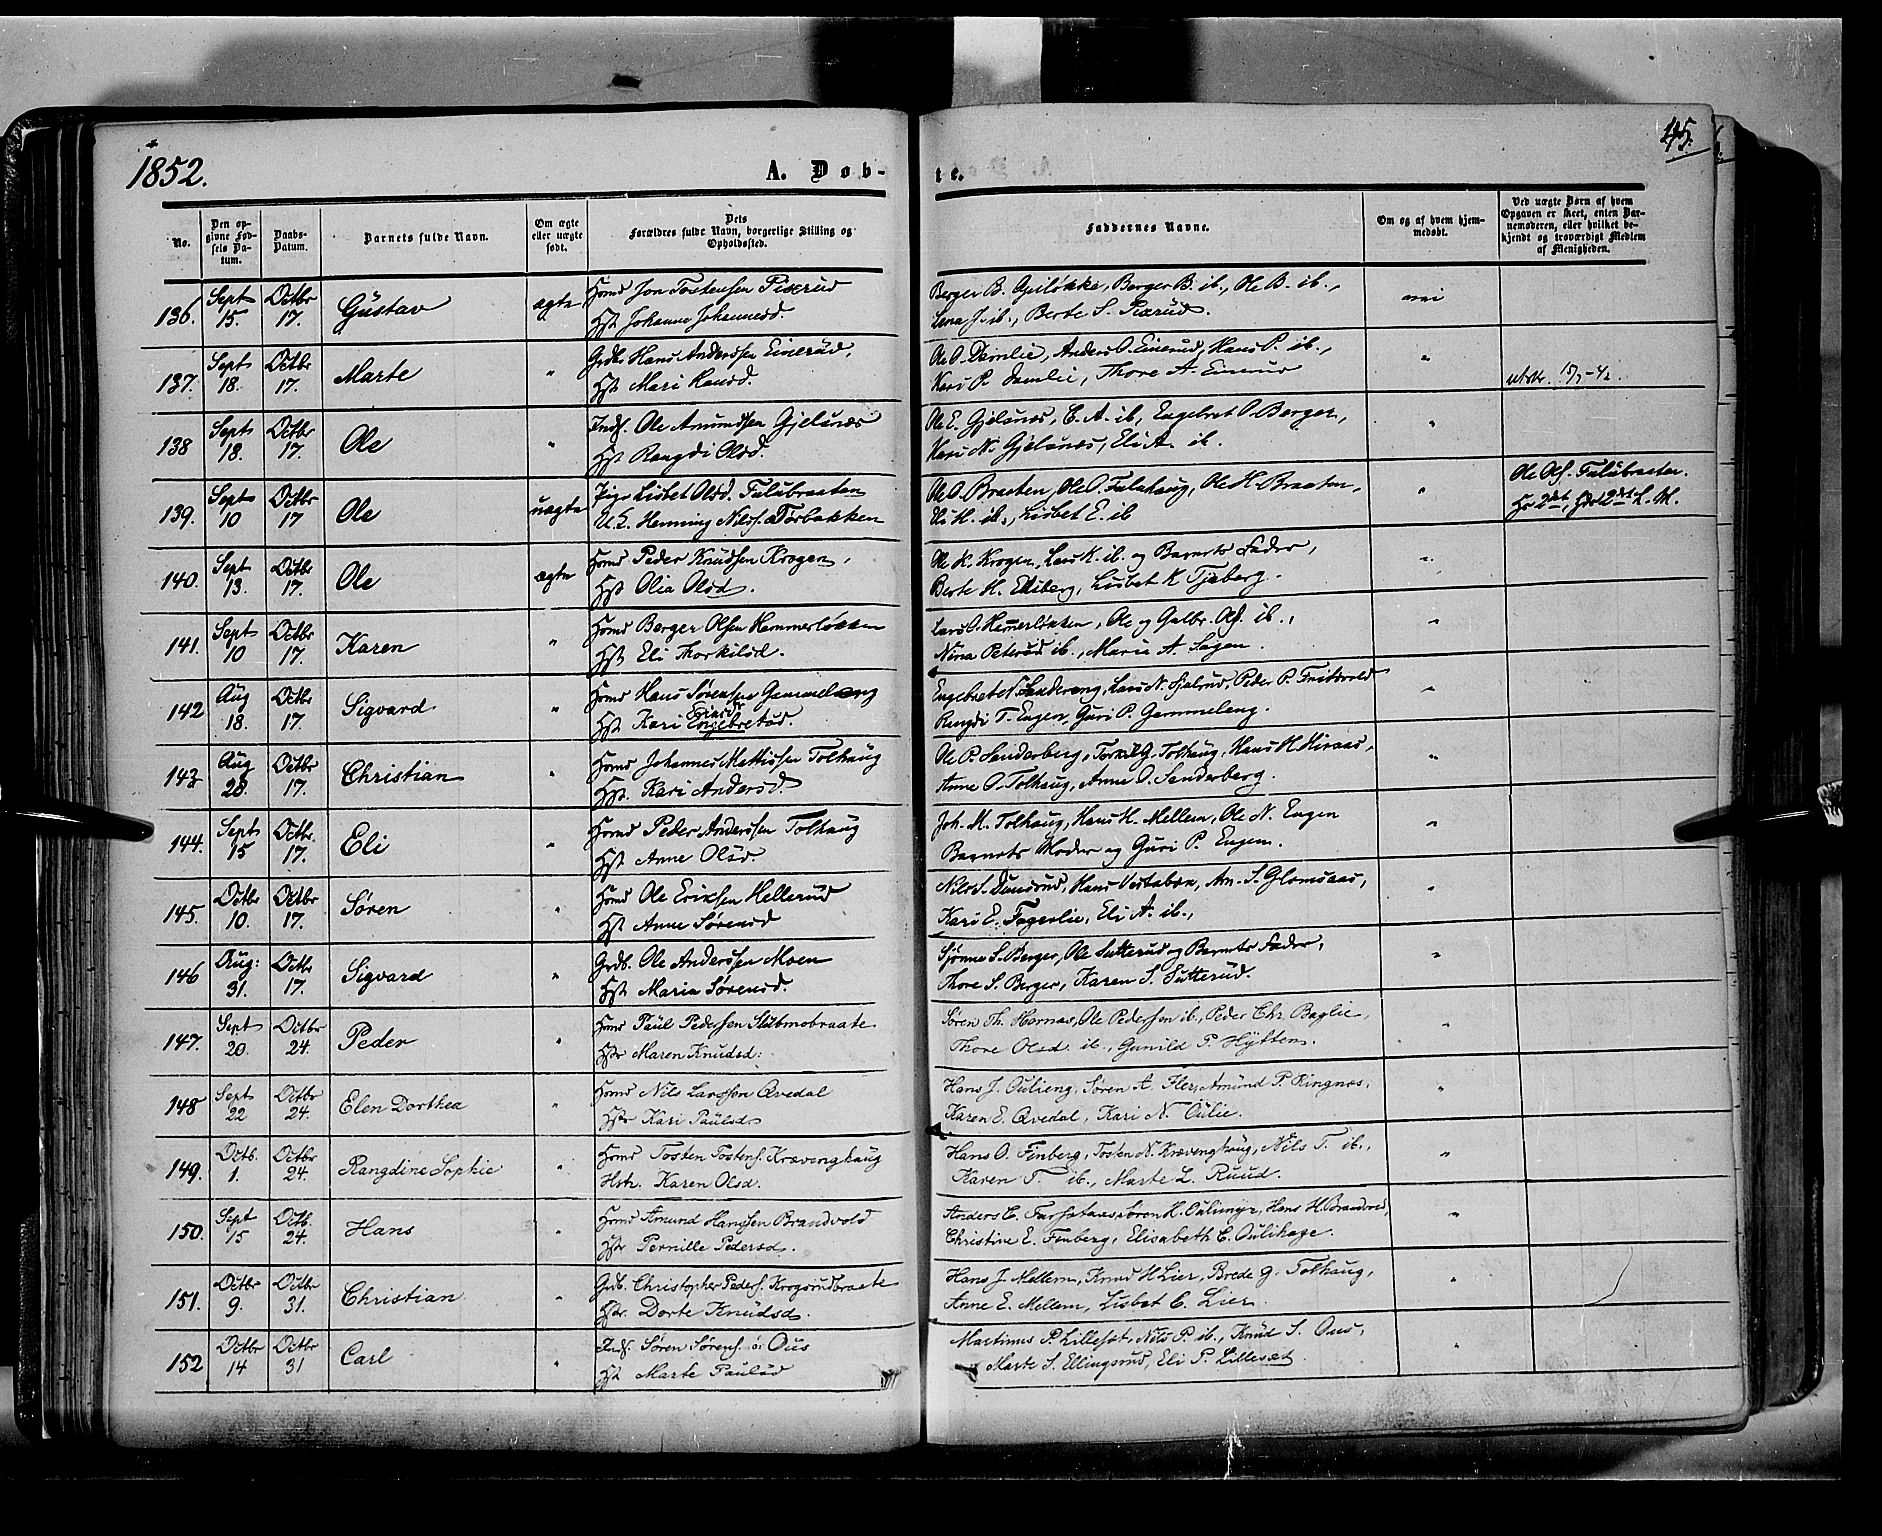 1852.
A. Døb-
te.
45.
No.
Den op-
givne Fød-
sels Da-
tum.
Daabs-
Datum.
Barnets fulde Navn.
Om ægte
eller uægte
født.
Dets
Forældres fulde Navn, borgerlige Stilling og
Opholdssted.
Faddernes Navne.
Om og af hvem hjem-
medøbt.
Ved uægte Børn af hvem
Opgaven er skeet, enten Bar-
nemoderen, eller hvilket be-
kjendt og troværdigt Medlem
af Menigheden.
136. Sept 15. Octbr 17. Gustav ægte Hmd Jon Tostensen Pixrud
Hst Johanne Johannesd.
Berger B. Gjeiløkke, Berger B. ib., Ole B. ib.,
Lena J. ib., Berte S. Pixrud.
nei
137. Sept 18. Octbr 17. Marte " Grdb. Hans Anderssen Einerud,
Hst Mari Hansd.
Ole O. Damlie, Anders O. Einerud, Hans P. ib.,
Kari P. Damlie, Thore A. Einerud
"
utstr. 15/7-42.
138 Sept 18. Octbr 17. Ole " Inds. Ole Amundsen Gjelsnæs
Hst Rangdi Olsd.
Ole E. Gjelsnæs, E. A. ib., Engebret O. Berger,
Kari N. Gjelsnæs, Eli A. ib.
"
139. Sept 10 Octbr 17 Ole uægte Pige Lisbet Olsd. Fulubraaten
U.K. Henning Nilss. Torbakken
Ole O. Braaten, Ole O. Fuluhaug, Ole H. Braaten,
Eli H. ib., Lisbet E. ib
"
Ole Ols. Fulubraaten.
140. Sept 13. Octbr 17. Ole ægte Hmd Peder Knudsen Krogen,
Hst Olia Olsd.
Ole K. Krogen, Lars K. ib. og Barnets Fader,
Berte H. Ekeberg, Lisbet K. Tjeberg.
"
141. Sept 10 Octbr 17. Karen " Hmd Berger Olsen Hammerløkken
Hst Eli Thorkilsd.
Lars O. Hamerløkken, Ole og Gulbr. Ols. ib.,
Nina Petersd ib., Marie A. Sagen.
"
142 Aug 18. Octbr 17. Sigvard " Hmd Hans Sørensen Gammeleng
Einarsd
Hst Kari Engebretsd.
Engebret N. Sandereng, Lars N. Sjølrud, Peder P. Fritsvold
Rangdi T. Engen, Guri P. Gammeleng.
"
143 Aug 28. Octbr 17. Christian " Hmd Johannes Mattissen Tolhaug
Hst. Kari Andersd.
Ole P. Sanderberg, Torkil G. Tolhaug, Hans H. Moraas,
Anne O. Tolhaug, Anne O. Sanderberg.
"
144. Sept 15 Octbr. 17. Eli " Hmd Peder Anderssen Tolhaug
Hst Anne Olsd.
Joh. M. Tolhaug, Hans H. Mellem, Ole N. Engen
Barnets Moder og Guri P. Engen.
"
145. Octbr 10. Octbr 17. Søren " Hmd Ole Eriksen Hellerud
Hst Anne Sørensd
Nils S. Dunsrud, Hans Vestabæk, Am. S. Glomsaas,
Kari E. Fagerlie, Eli A. ib.,
"
146 Aug: 31. Octbr 17. Sigvard " Grdb. Ole Anderssen Moen
Hst Maria Sørensd.
Sjønne S. Berger, Ole Sutterud og Barnets Fader,
Thore S. Berger, Karen S. Sutterud.
"
147. Sept 20. Octbr 24. Peder " Hmd Paul Pedersen Slubmobraate
Hstr Maren Knudsd:
Søren Th. Hornæs, Ole Pederssen ib., Peder Chr. Baglie,
Thore Olsd. ib., Gunild P. Hytten.
"
148 Sept 22 Octbr 24. Elen Dorthea " Hmd Nils Larssen Qvedal
Hstr Kari Paulsd
Hans J. Oulieng, Søren A. Fler, Amund P. Ringnæs,
Karen E. Qvedal, Kari N. Oulie.
"
149. Octb. 1. Octbr 24. Rangdine Sophie " Hmd Tosten Tostens. Krævenghaug
Hstr. Karen Olsd.
Hans O. Finberg, Tosten N. Krævenghaug, Nils T. ib.,
Karen T. ib., Marte L. Ruud.
"
150. Sept 15 Octb. 24. Hans " Hmd Amund Hanssen Brandvold
Hstr Pernille Pedersd.
Anders E. Søren H. Oulimyr, Hans H. Brandvold,
Christine E. Finberg, Elisabeth C. Oulihage.
"
151. Octbr 9. Octbr 31. Christian " Grdb. Christopher Peders. Krogsrudbraate
Hstr. Dorte Knudsd.
Hans J. Mellem, Knud H. Lier, Brede G. Tolhaug,
Anne E. Mellem, Lisbet C. Lier.
"
152 Octbr 14 Octbr 31 Carl " Inds. Søren Sørens. Ous
Hst Marte Paulsd
Martinus P. Lillesæt, Nils P. ib., Knud S. Ous,
Marte S. Ellingsrud, Eli P. Lillesæt.
"